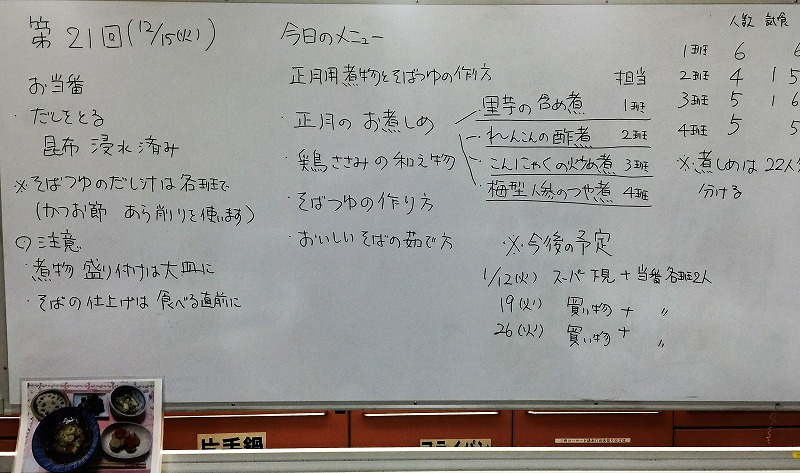 第21回(12/15(火))
お当番
・だしをとる
昆布 浸水済み
※そばつゆのだし汁は各班で
(かつお節 あら削りを使います)
○注意
・煮物 盛り付けは大皿に
・そばの仕上げは 食べる直前に
今日のメニュー
正月用煮物とそばつゆの作り方
・正月の お煮しめ
・鶏ささみの和え物
・そばつゆの作り方
・おいしいそばの茹で方
担当
里芋の含め煮 1班
れんこんの酢煮 2班
こんにゃくの炒め煮 3班
梅型人参のつや煮 4班
※今後の予定
1/12(火) スーパー下見 + 当番各班2人
19(火) 買い物 + 〃
26(火) 買い物 + 〃
人数 試食
1班 6 6
2班 4 1 5
3班 5 1 6
4班 5 5
※煮しめは22人分
分ける
片手鍋
フライパン